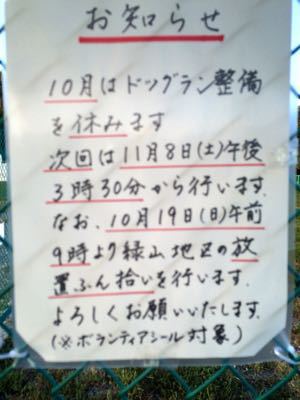 お知らせ
10月はドッグラン整備
を休みます
次回は11月8日(土)午後
3時30分から行います.
なお、10月19日(日)午前
9時より緑山地区の放
置ふん拾いを行います.
よろしくお願いいたします.
(※ボランティアシール対象)